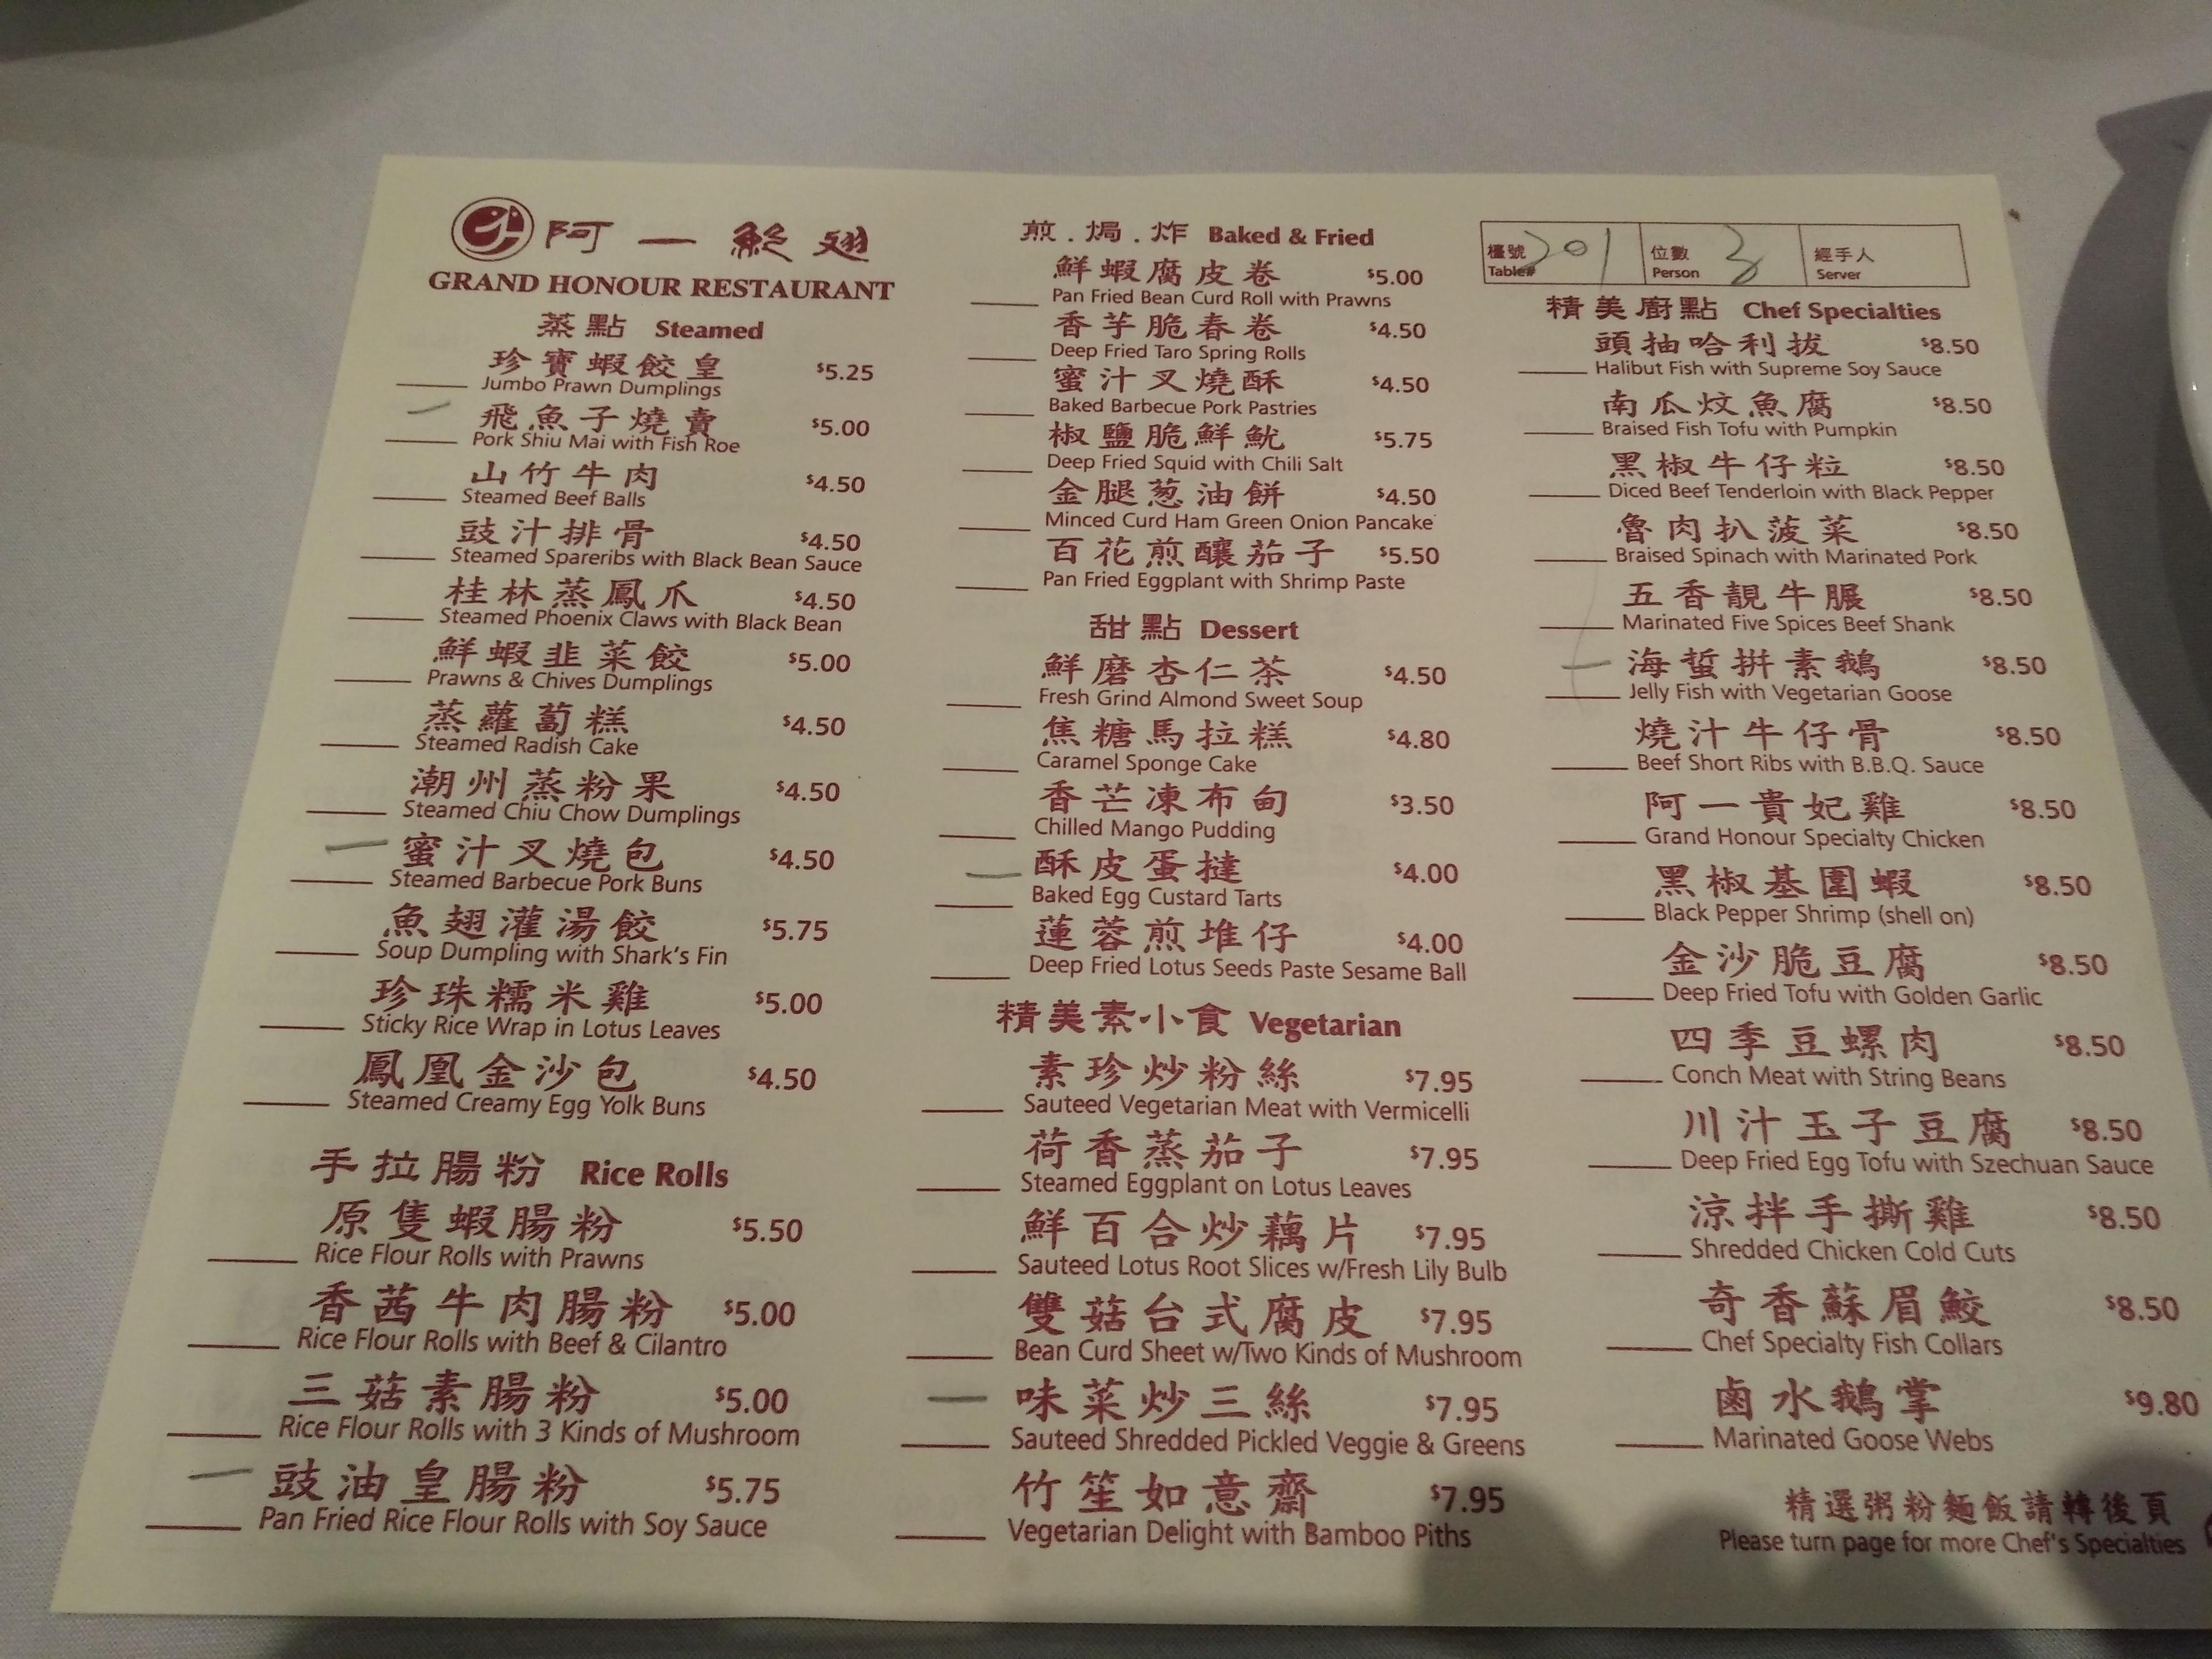 阿一鮑翅
GRAND HONOUR RESTAURANT
蒸點 Steamed
珍寶蝦餃皇 $5.25
Jumbo Prawn Dumplings
飛魚子燒賣 $5.00
Pork Shiu Mai with Fish Roe
山竹牛肉 $4.50
Steamed Beef Balls
豉汁排骨 $4.50
Steamed Spareribs with Black Bean Sauce
桂林蒸鳳爪 $4.50
Steamed Phoenix Claws with Black Bean
鮮蝦韭菜餃 $5.00
Prawns & Chives Dumplings
蒸蘿蔔糕 $4.50
Steamed Radish Cake
潮州蒸粉果 $4.50
Steamed Chiu Chow Dumplings
蜜汁叉燒包 $4.50
Steamed Barbecue Pork Buns
魚翅灌湯餃 $5.75
Soup Dumpling with Shark's Fin
珍珠糯米雞 $5.00
Sticky Rice Wrap in Lotus Leaves
鳳凰金沙包 $4.50
Steamed Creamy Egg Yolk Buns
手拉腸粉 Rice Rolls
原隻蝦腸粉 $5.50
Rice Flour Rolls with Prawns
香茜牛肉腸粉 $5.00
Rice Flour Rolls with Beef & Cilantro
三菇素腸粉 $5.00
Rice Flour Rolls with 3 Kinds of Mushroom
豉油皇腸粉 $5.75
Pan Fried Rice Flour Rolls with Soy Sauce
煎.焗.炸 Baked & Fried
鮮蝦腐皮卷 $5.00
Pan Fried Bean Curd Roll with Prawns
香芋脆春卷 $4.50
Deep Fried Taro Spring Rolls
蜜汁叉燒酥 $4.50
Baked Barbecue Pork Pastries
椒鹽脆鮮魷 $5.75
Deep Fried Squid with Chili Salt
金腿葱油餅 $4.50
Minced Curd Ham Green Onion Pancake
百花煎釀茄子 $5.50
Pan Fried Eggplant with Shrimp Paste
甜點 Dessert
鮮磨杏仁茶 $4.50
Fresh Grind Almond Sweet Soup
焦糖馬拉糕 $4.80
Caramel Sponge Cake
香芒凍布甸 $3.50
Chilled Mango Pudding
酥皮蛋撻 $4.00
Baked Egg Custard Tarts
蓮蓉煎堆仔 $4.00
Deep Fried Lotus Seeds Paste Sesame Ball
精美素小食 Vegetarian
素珍炒粉絲 $7.95
Sauteed Vegetarian Meat with Vermicelli
荷香蒸茄子 $7.95
Steamed Eggplant on Lotus Leaves
鮮百合炒藕片 $7.95
Sauteed Lotus Root Slices w/Fresh Lily Bulb
雙菇台式腐皮 $7.95
Bean Curd Sheet w/Two Kinds of Mushroom
味菜炒三絲 $7.95
Sauteed Shredded Pickled Veggie & Greens
竹笙如意齋 $7.95
Vegetarian Delight with Bamboo Piths
檯號 201 位數 3 經手人
Table# Person Server
精美廚點 Chef Specialties
頭抽哈利拔 $8.50
Halibut Fish with Supreme Soy Sauce
南瓜炆魚腐 $8.50
Braised Fish Tofu with Pumpkin
黑椒牛仔粒 $8.50
Diced Beef Tenderloin with Black Pepper
魯肉扒菠菜 $8.50
Braised Spinach with Marinated Pork
五香靚牛𦟌 $8.50
Marinated Five Spices Beef Shank
海蜇拼素鵝 $8.50
Jelly Fish with Vegetarian Goose
燒汁牛仔骨 $8.50
Beef Short Ribs with B.B.Q. Sauce
阿一貴妃雞 $8.50
Grand Honour Specialty Chicken
黑椒基圍蝦 $8.50
Black Pepper Shrimp (shell on)
金沙脆豆腐 $8.50
Deep Fried Tofu with Golden Garlic
四季豆螺肉 $8.50
Conch Meat with String Beans
川汁玉子豆腐 $8.50
Deep Fried Egg Tofu with Szechuan Sauce
涼拌手撕雞 $8.50
Shredded Chicken Cold Cuts
奇香蘇眉鮫 $8.50
Chef Specialty Fish Collars
鹵水鵝掌 $9.80
Marinated Goose Webs
精選粥粉麵飯請轉後頁
Please turn page for more Chef's Specialties